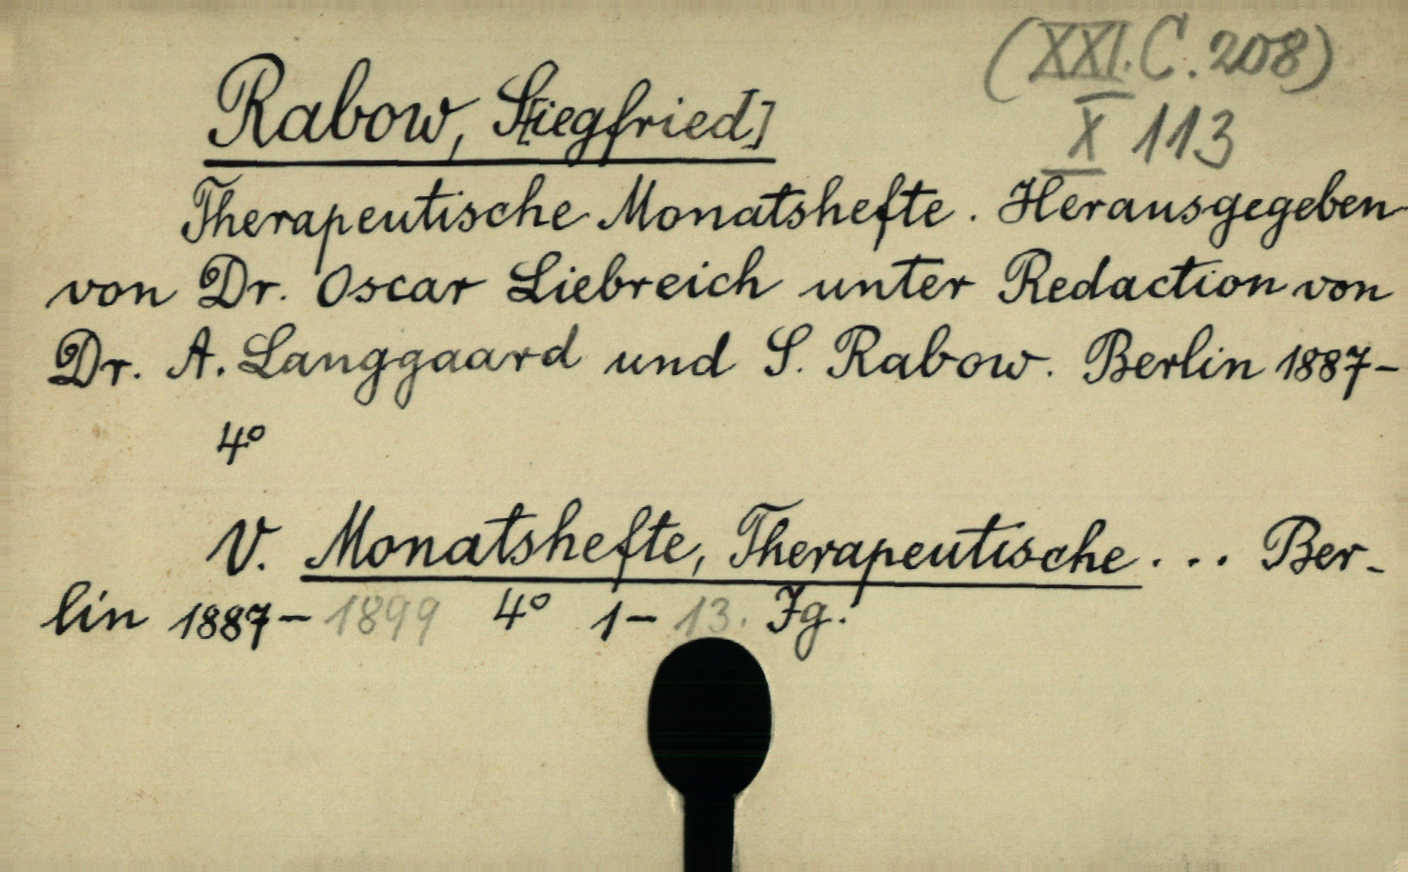 (XXI. C. 208)
X 113
Rabow, S[iegfried]
Therapeutische Monatshefte. Herausgegeben
von Dr. Oscar Liebreich unter Redaction von
Dr. A. Langgaard und S. Rabow. Berlin 1887-
4°
V. Monatshefte, Therapeutische ... Ber-
lin 1887-1899 4° 1-13. Jg.